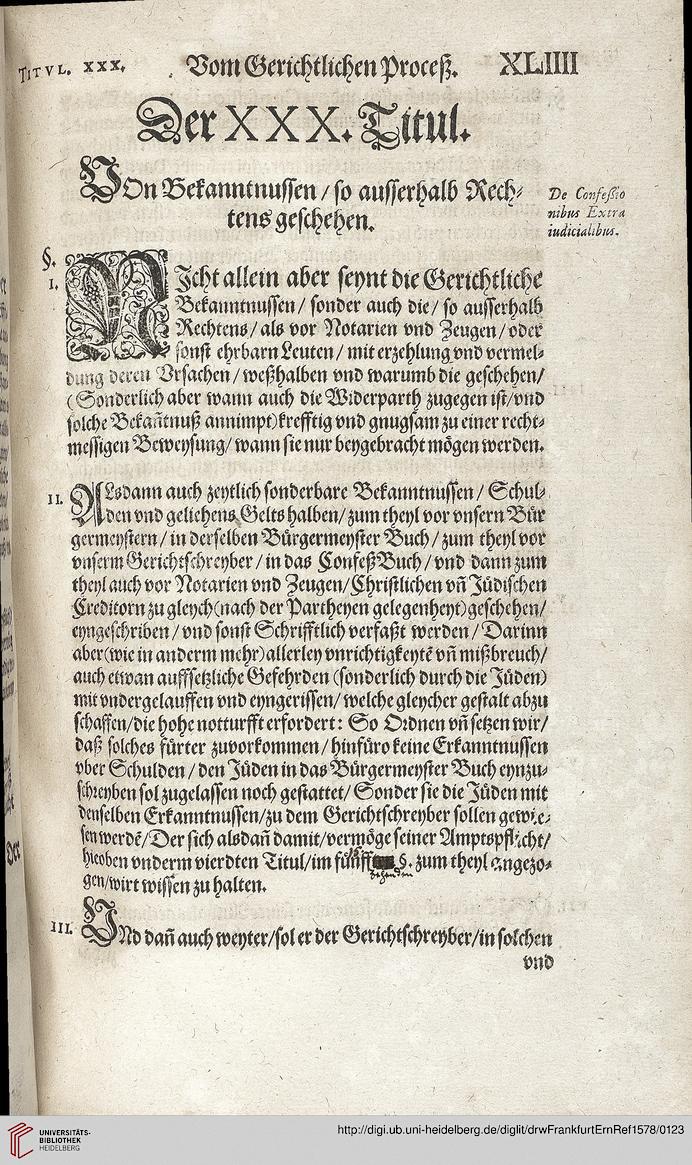 TITVL. XXX. Vom Gerichtlichen Proceß. XLIIII
Der XXX. Titul.
VOn Bekanntnussen / so ausserhalb Rech-
tens geschehen.
De Confeßio
nibus Extra
iudicialibus.
§.
I. NIcht allein aber seynt die Gerichtliche
Bekanntnussen / sonder auch die / so ausserhalb
Rechtens / als vor Notarien vnd Zeugen / oder
sonst ehrbarn Leuten / mit erzehlung vnd vermel-
dung deren Vrsachen / weßhalben vnd warumb die geschehen /
(Sonderlich aber wann auch die Widerparth zugegen ist / vnd
solche Bekañtnuß annimpt) krefftig vnd gnugsam zu einer recht-
messigen Beweysung / wann sie nur beygebracht mögen werden.
II. ALsdann auch zeytlich sonderbare Bekanntnussen / Schul-
den vnd geliehens Gelts halben / zum theyl vor vnsern Bür
germeystern / in derselben Bürgermeyster Buch / zum theyl vor
vnserm Gerichtschreyber / in das Confeß Buch / vnd dann zum
theyl auch vor Notarien vnd Zeugen / Christlichen vñ Jüdischen
Creditorn zu gleych (nach der Partheyen gelegenheyt) geschehen /
eyngeschriben / vnd sonst Schrifftlich verfaßt werden / Darinn
aber (wie in anderm mehr) allerley vnrichtigkeytẽ vñ mißbreuch /
auch etwan auffsetzliche Gefehrden (sonderlich durch die Jüden)
mit vndergelauffen vnd eyngerissen / welche gleycher gestalt abzu
schaffen / die hohe notturfft erfordert: So Ordnen vñ setzen wir /
daß solches fürter zuvorkommen / hinfüro keine Erkanntnussen
vber Schulden / den Jüden in das Bürgermeyster Buch eynzu-
schreyben sol zugelassen noch gestattet / Sonder sie die Jüden mit
denselben Erkanntnussen / zu dem Gerichtschreyber sollen gewie-
sen werdẽ / Der sich alsdañ damit / vermöge seiner Amptspflicht /
hieoben vnderm vierdten Titul / im fünff §. zum theyl angezo-
zehenden
gen / wirt wissen zu halten.
III. VNd dañ auch weyter / sol er der Gerichtschreyber / in solchen
vnd
Der
UNIVERSITÄTS-
BIBLIOTHEK
HEIDELBERG
http://digi.ub.uni-heidelberg.de/diglit/drwFrankfurtErnRef1578/0123